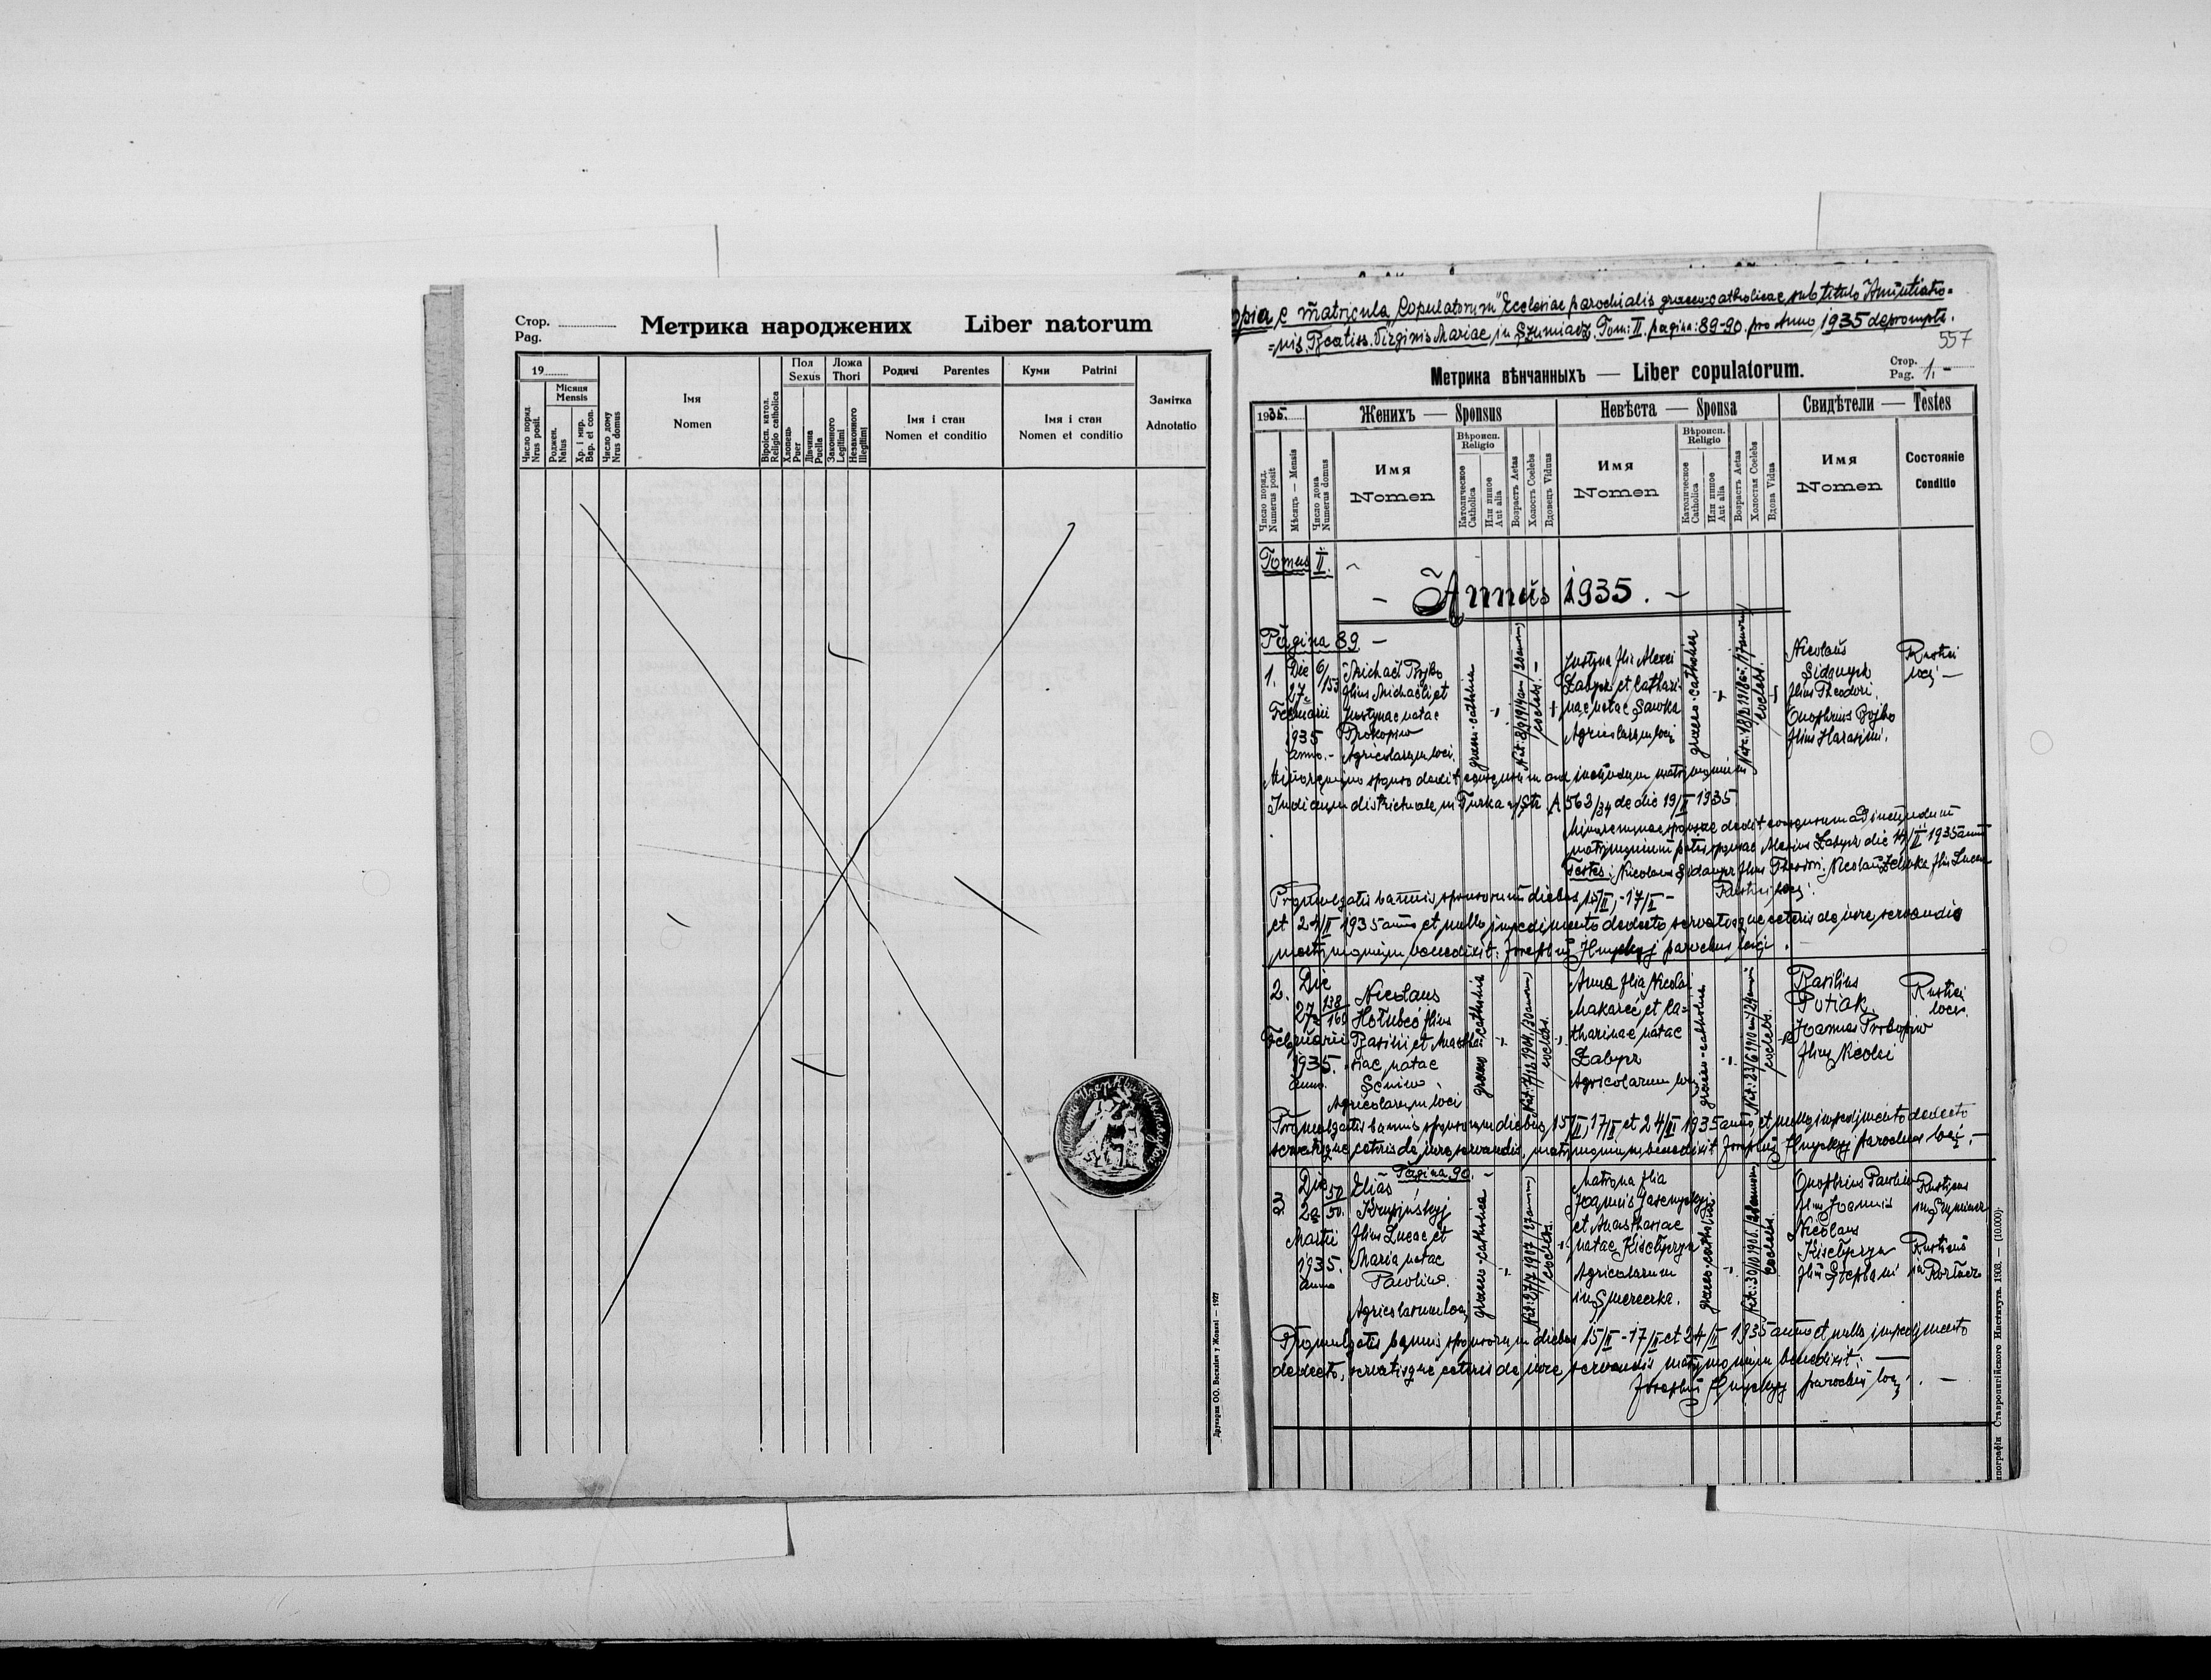 Стор.
Pag.
Метрика народжених Liber natorum
19
Число поряд
Nrus posit.
Місяця
Mensis
Роджен.
Natus
Хр. і мир.
Bap. et con.
Число дому
Nrus domus
Імя
Nomen
Віроісп. катол.
Religio catholica
Пол
Sexus
Хлопець
Puer
Дівчина
Puella
Ложа
Thori
Законного
Legitimi
Незаконного
Illegitimi
Родичі Parentes
Імя і стан
Nomen et conditio
Куми Patrini
Імя і стан
Nomen et conditio
Замітка
Adnotatio
Друкарня ОО. Василіян у Жовкві — 1927
opia e matricula "Copulatorum" Ecclesiae parochialis graeco-catholicae sub titulo Annuntiatio=
=nis Beatiss. Virginis Mariae in Szumiacz. Tom: II. pagina: 89-90. pro Anno 1935 deprompta.
557
Метрика вѣнчанныхъ — Liber copulatorum.
Стор.
Pag. 1.-
1935.
Женихъ — Sponsus
Невѣста — Sponsa
Свидѣтели — Testes
Число поряд.
Numerus posit
Мѣсяцъ — Mensis
Число дома
Numerus domus
Имя
Nomen
Вѣроисп.
Religio
Католическое
Catholica
Или иное
Aut alia
Возрастъ Aetas
Холостъ Coelebs
Вдовецъ Viduus
Имя
Nomen
Вѣроисп.
Religio
Католическое
Catholica
Или иное
Aut alia
Возрастъ Aetas
Холостая Coelebs
Вдова Vidua
Имя
Nomen
Состояніе
Conditio
Tomus II.
- Annus 1935. -
Pagina 89 -
1.
Die
27
Februarii
1935
anno.-
6/153
Michaël Bojko
filius Michaëli et
Justynae natae
Prokopiw
Agricolarum loci.
graeco-catholica
Nat: 8/9 1914 an/20 annorum
coelebs.-
Justyna filia Alexei
Zabyr et Cathari-
nae natae Sawka
Agricolarum loci
graeco-catholica
coelebs.
Nicolaus
Sidawyr
filius Theodori.
Onophrius Bojko
filius Harasimi.
Rustici
loci —
Minorenni sponso dedit consensum ad ineundum matrimonium
Judicium districtuale in Turka n/Str. A 563/34 de die 19/II 1935
Minorennae sponsae dedit consensum ad ineundum
matrimonium pater sponsae Alexius Zabyr die 14/II 1935 anno
Testes: Nicolaus Sidawyr filius Theodori. Nicolaus filius Lucae
Rustici loci.
Promulgatis bannis sponsorum diebus 15/II, -17/II -
et 24/II 1935 anno et nullo impedimento detecto servatisque ceteris de iure servandis
matrimonium benedixit: Josephus Hnyckyj parochus loci.
2.
Die
27
Februarii
1935.
anno.
138/160
Nicolaus
Hołubeć filius
Basilii et Anastha-
siae natae
Seniw
Agricolarum loci
graeco-catholica
Nat: 7/12 1904/30 annorum
coelebs.
Anna filia Nicolai
Makareć et Ca-
tharinae natae
Zabyr
Agricolarum loci
graeco-catholica
Nat: 23/6 1910 an/24 anni
coelebs.
Basilius
Putiak.
Joannes Prokopiw
filius Nicolai
Rustici
loci.
Promulgatis bannis sponsorum diebus 15/II, 17/II et 24/II 1935 anno, et nullo impedimento detecto
servatisque ceteris de iure servandis, matrimonium benedixit Josephus Hnyckyj parochus loci. —
- Pagina 90. -
3
Die
2
Martii
1935.
anno
50/50.
Elias
Krupjńskyj
filius Lucae et
Maria natae
Pawliw.
Agricolarum loci
graeco-catholica
Nat: 27/7 1907/27 annorum
coelebs.
Matrona filia
Joannis
et Anasthasiae
natae Kiscbyrya
Agricolarum
in Smereczka.
graeco-catholica
Nat: 30/10 1906./28 annorum
coelebs.
Onophrius Pawliw
filius Joannis
Nicolaus
filius Stephani
Rusticus
in Szumiacz
Rusticus
in
Promulgatis bannis sponsorum diebus 15/II - 17/II et 24/II 1935 anno et nullo impedimento
detecto, servatisque ceteris de iure servandis matrimonium benedixit: —
Josephus Hnyckyj parochus loci. —
ипографія Ставропигійского Института. 1903. — (10.000)